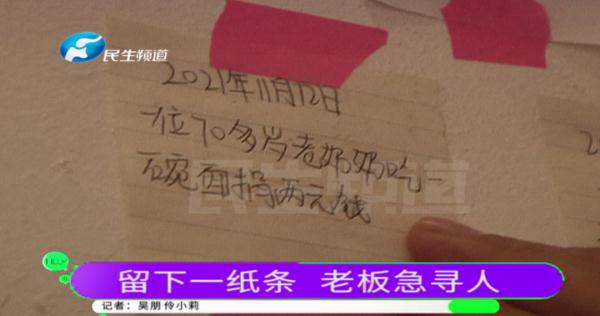 民生频道
2021年11月12日
一位70多岁老奶奶吃一
碗面捐两元钱
民生频道
HELLO
留下一纸条 老板急寻人
记者：吴朋 伶小莉